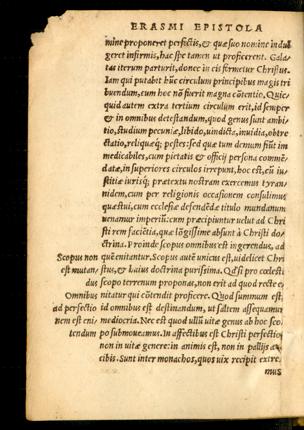 ERASMI EPISTOLA
mine proponeret perfectis, & quæ suo nomine indul
geret infirmis, hac spe tamen ut proficerent. Gala-
tas iterum parturit, donec in eis formetur Christus.
Iam qui putabit hũc circulum principibus magis tri
buendum, cum hoc nõ fuerit magna cõtentio. Quic-
quid autem extra tertium circulum erit, id semper
& in omnibus detestandum, quod genus sunt ambi-
tio, studium pecuniæ, libido, ira, inuidia, obtre
ctatio, reliquæq; pestes: sed quæ tum demum fiũt im
medicabiles, cum pietatis & officij persona commẽ-
datæ, in superiores circulos irrepunt, hoc est, cũ iu-
stitiæ iurisq; prætextu nostram exercemus tyran-
nidem, cum per religionis occasionem consulimus
quæstui, cum ecclesiæ defendẽdæ titulo mundanum
uenamur imperiũ: cum præcipiuntur uelut ad Chri
sti rem faciẽtia, quæ lõgissime absunt à Christi do-
ctrina. Proinde scopus omnibus est ingerendus, ad
Scopus non quẽ enitantur. Scopus autẽ unicus est, uidelicet Chri
est mutan- stus, & huius doctrina purissima. Qd̃ si pro cœlesti
dus scopo terrenum proponas, non erit ad quod recte e-
Omnibus nitatur qui cõtendit proficere. Quod summum est,
ad perfectio id omnibus est destinandum, ut saltem assequamur
nem est eni- mediocria. Nec est quod ullũ uitæ genus ab hoc sco-
tendum po submoueamus. In affectibus est Christi perfectio,
non in uitæ genere: in animis est, non in pallijs aut
cibis. Sunt inter monachos, quos uix recipit extre-
mus